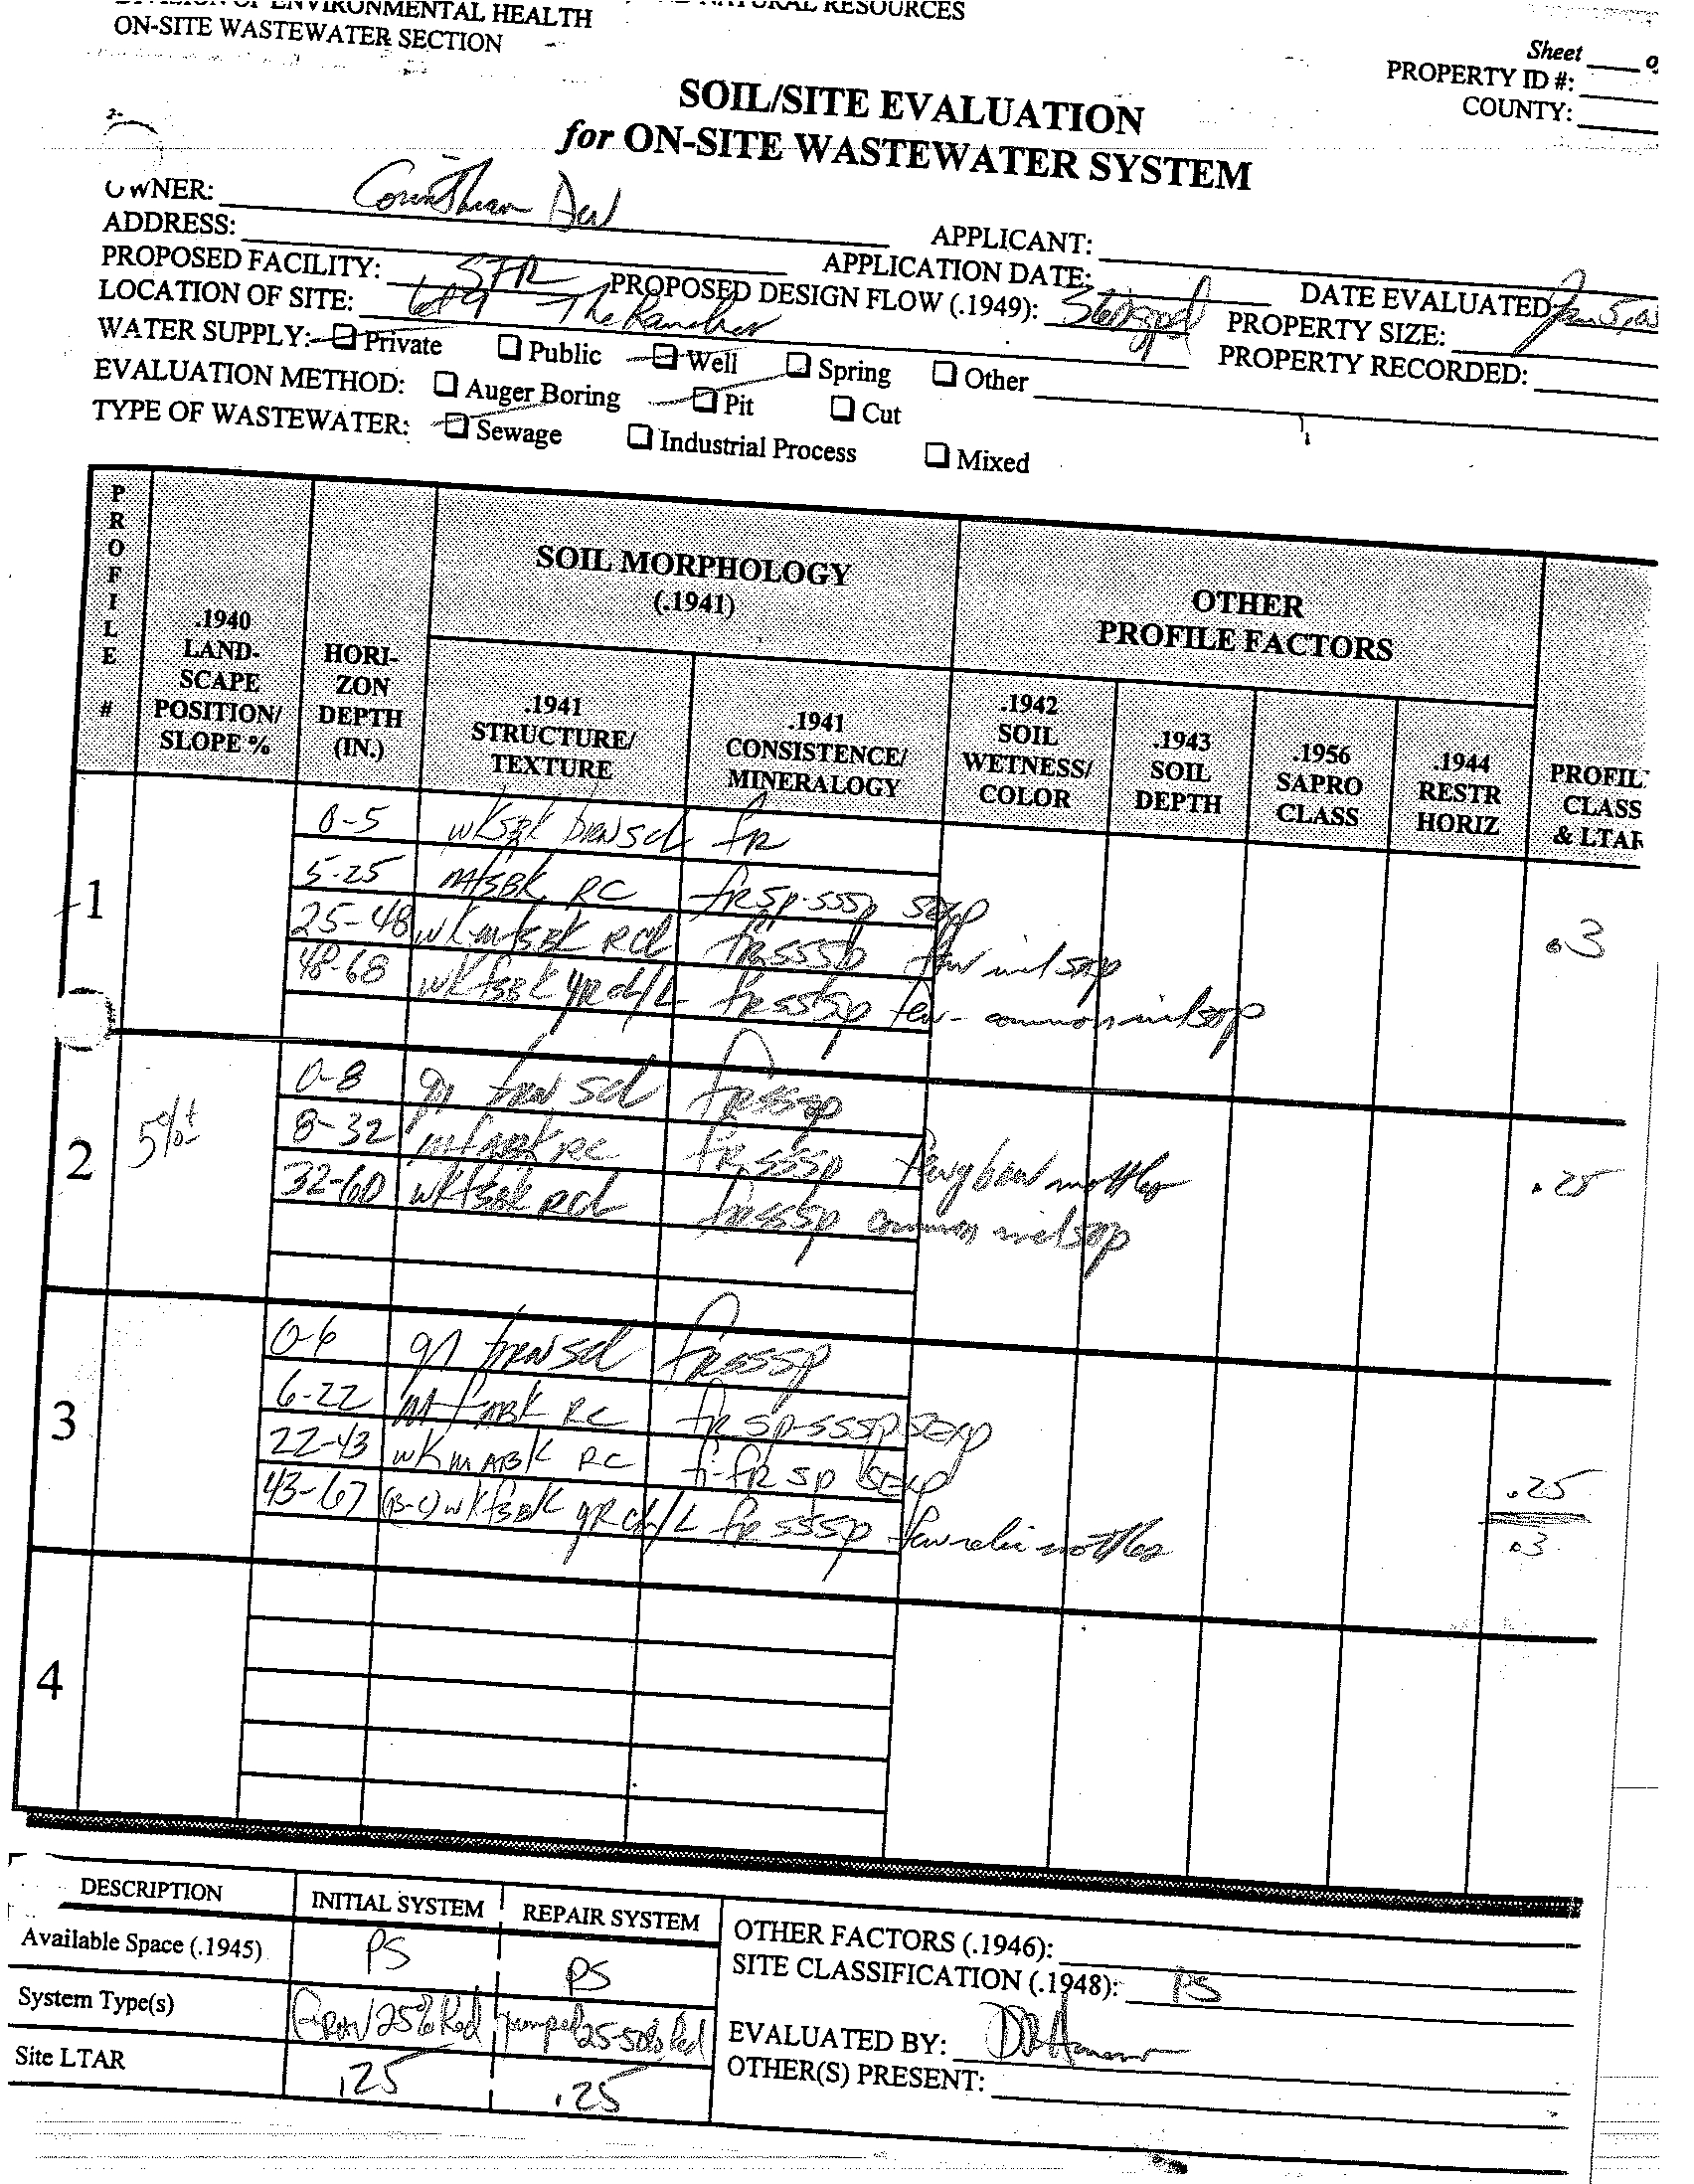 DIVISION OF ENVIRONMENTAL HEALTH NATURAL RESOURCES
ON-SITE WASTEWATER SECTION
Sheet
PROPERTY ID #:
COUNTY:
SOIL/SITE EVALUATION
for ON-SITE WASTEWATER SYSTEM
OWNER: Corinthian Dev
ADDRESS: APPLICANT:
PROPOSED FACILITY: SFR APPLICATION DATE: DATE EVALUATED Jan 5,
LOCATION OF SITE: PROPOSED DESIGN FLOW (.1949): PROPERTY SIZE:
WATER SUPPLY: Private Public Well Spring Other PROPERTY RECORDED:
EVALUATION METHOD: Auger Boring Pit Cut
TYPE OF WASTEWATER: Sewage Industrial Process Mixed
PROFILE #
.1940 LAND-SCAPE POSITION/ SLOPE %
HORI-ZON DEPTH (IN.)
SOIL MORPHOLOGY
(.1941)
.1941 STRUCTURE/ TEXTURE
.1941 CONSISTENCE/ MINERALOGY
OTHER
PROFILE FACTORS
.1942 SOIL WETNESS/ COLOR
.1943 SOIL DEPTH
.1956 SAPRO CLASS
.1944 RESTR HORIZ
PROFIL CLASS & LTAR
1
0-5 wksbk brn scl fr
5-25 mfsbk RC fr sp-sssp sexp
25-48 wk-mfsbk RCL fr sssp few mil sap
48-68 wkfsbk YR cl/L fr sssp few-common mil sap
.3
2 5%±
0-8 gr brn scl fr sssp
8-32 mfabk RC fr sssp few y brn mottles
32-60 wkfsbk RCL fr sssp common mil sap
.25
3
0-6 gr brn scl fr sssp
6-22 mfabk RC fr sp-sssp sexp
22-43 wkmABK RC fi-fr sp sexp
43-67 (B-C) wkfsbk YR cl/L fr sssp few relic mottles
.25
.3
4
DESCRIPTION INITIAL SYSTEM REPAIR SYSTEM
Available Space (.1945) PS PS
System Type(s) 25% Red pump 25-50% Red
Site LTAR .25 .25
OTHER FACTORS (.1946):
SITE CLASSIFICATION (.1948): PS
EVALUATED BY:
OTHER(S) PRESENT: